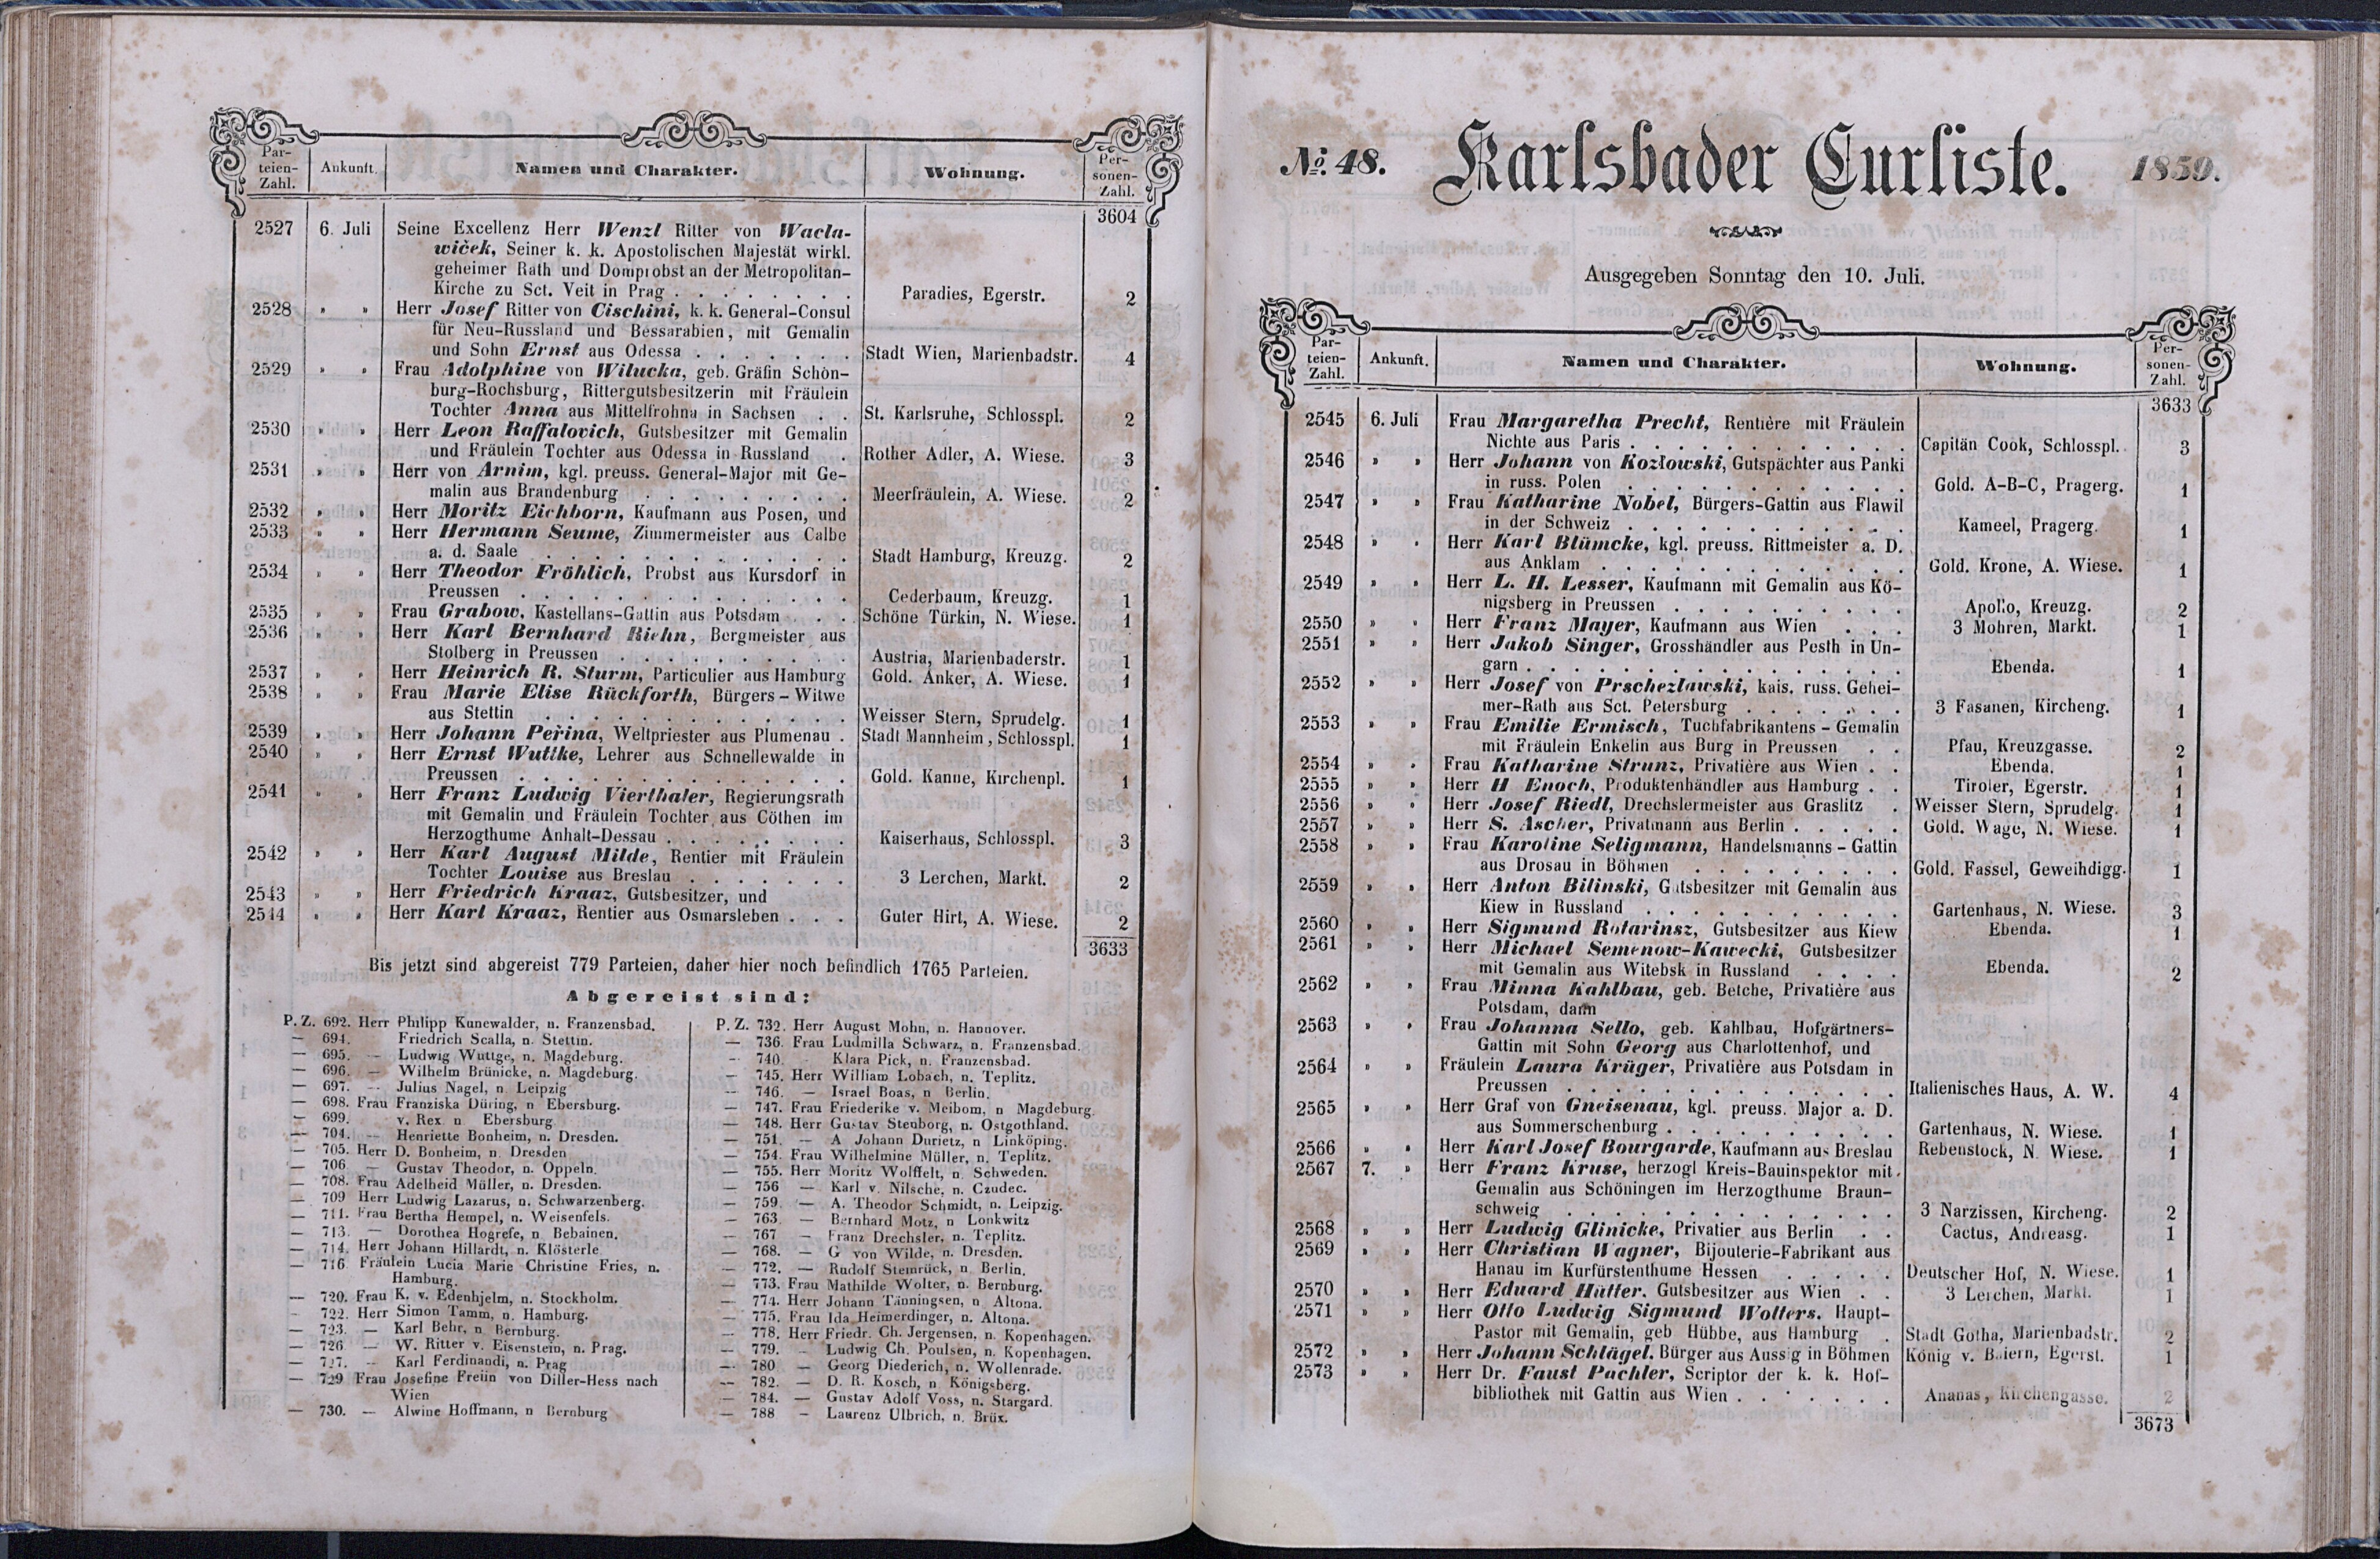 Par-
teien-
Zahl.
Ankunft.
Namen und Charakter.
Wohnung.
Per-
sonen-
Zahl.
3604
2527 6. Juli Seine Excellenz Herr Wenzl Ritter von Wacla-
wiček, Seiner k. k. Apostolischen Majestät wirkl.
geheimer Rath und Domprobst an der Metropolitan-
Kirche zu Sct. Veit in Prag . . . . . . . . Paradies, Egerstr. 2
2528 » » Herr Josef Ritter von Cischini, k. k. General-Consul
für Neu-Russland und Bessarabien, mit Gemalin
und Sohn Ernst aus Odessa . . . . . . . Stadt Wien, Marienbadstr. 4
2529 » » Frau Adolphine von Wilucka, geb. Gräfin Schön-
burg-Rochsburg, Rittergutsbesitzerin mit Fräulein
Tochter Anna aus Mittelfrohna in Sachsen . . St. Karlsruhe, Schlosspl. 2
2530 » » Herr Leon Raffalovich, Gutsbesitzer mit Gemalin
und Fräulein Tochter aus Odessa in Russland . Rother Adler, A. Wiese. 3
2531 » » Herr von Arnim, kgl. preuss. General-Major mit Ge-
malin aus Brandenburg . . . . . . . . . Meerfräulein, A. Wiese. 2
2532 » » Herr Moritz Eichborn, Kaufmann aus Posen, und
2533 » » Herr Hermann Seume, Zimmermeister aus Calbe
a. d. Saale . . . . . . . . . . . . . Stadt Hamburg, Kreuzg. 2
2534 » » Herr Theodor Fröhlich, Probst aus Kursdorf in
Preussen . . . . . . . . . . . . . . Cederbaum, Kreuzg. 1
2535 » » Frau Grabow, Kastellans-Gattin aus Potsdam . . . Schöne Türkin, N. Wiese. 1
2536 » » Herr Karl Bernhard Riehn, Bergmeister aus
Stolberg in Preussen . . . . . . . . . . Austria, Marienbaderstr. 1
2537 » » Herr Heinrich R. Sturm, Particulier aus Hamburg Gold. Anker, A. Wiese. 1
2538 » » Frau Marie Elise Rückforth, Bürgers-Witwe
aus Stettin . . . . . . . . . . . . . Weisser Stern, Sprudelg. 1
2539 » » Herr Johann Peřina, Weltpriester aus Plumenau . Stadt Mannheim, Schlosspl. 1
2540 » » Herr Ernst Wuttke, Lehrer aus Schnellewalde in
Preussen . . . . . . . . . . . . . . Gold. Kanne, Kirchenpl. 1
2541 » » Herr Franz Ludwig Vierthaler, Regierungsrath
mit Gemalin und Fräulein Tochter aus Cöthen im
Herzogthume Anhalt-Dessau . . . . . . . . Kaiserhaus, Schlosspl. 3
2542 » » Herr Karl August Milde, Rentier mit Fräulein
Tochter Louise aus Breslau . . . . . . . 3 Lerchen, Markt. 2
2543 » » Herr Friedrich Kraaz, Gutsbesitzer, und
2544 » » Herr Karl Kraaz, Rentier aus Osmarsleben . . . Guter Hirt, A. Wiese. 2
3633
Bis jetzt sind abgereist 779 Parteien, daher hier noch befindlich 1765 Parteien.
Abgereist sind:
P. Z. 692. Herr Philipp Kunewalder, n. Franzensbad.
— 694. Friedrich Scalla, n. Stettin.
— 695. — Ludwig Wuttge, n. Magdeburg.
— 696. — Wilhelm Brünicke, n. Magdeburg.
— 697. — Julius Nagel, n. Leipzig
— 698. Frau Franziska Düring, n Ebersburg.
— 699. v. Rex n Ebersburg
— 704. — Henriette Bonheim, n. Dresden.
— 705. Herr D. Bonheim, n. Dresden
— 706 — Gustav Theodor, n. Oppeln.
— 708. Frau Adelheid Müller, n. Dresden.
— 709 Herr Ludwig Lazarus, n. Schwarzenberg.
— 711. Frau Bertha Hempel, n. Weisenfels.
— 713. — Dorothea Hogrefe, n Bebainen.
— 714. Herr Johann Hillardt, n. Klösterle
— 716 Fräulein Lucia Marie Christine Fries, n.
Hamburg.
— 720. Frau K. v. Edenhjelm, n. Stockholm.
— 722. Herr Simon Tamm, n. Hamburg.
— 723. — Karl Behr, n Bernburg.
— 726 — W. Ritter v. Eisenstein, n. Prag.
— 727. — Karl Ferdinandi, n. Prag
— 729 Frau Josefine Freiin von Diller-Hess nach
Wien
— 730. — Alwine Hoffmann, n Bernburg
P. Z. 732. Herr August Mohn, n. Hannover.
— 736. Frau Ludmilla Schwarz, n. Franzensbad.
— 740. Klara Pick, n. Franzensbad.
— 745. Herr William Lobach, n. Teplitz.
— 746. — Israel Boas, n Berlin.
— 747. Frau Friederike v. Meibom, n Magdeburg.
— 748. Herr Gustav Stenborg, n. Ostgothland.
— 751. — A Johann Durietz, n Linköping.
— 754. Frau Wilhelmine Müller, n. Teplitz.
— 755. Herr Moritz Wolffelt, n Schweden.
— 756 — Karl v. Nilsche, n. Czudec.
— 759. — A. Theodor Schmidt, n. Leipzig.
— 763. — Bernhard Motz, n Lonkwitz
— 767 — Franz Drechsler, n. Teplitz.
— 768. — G von Wilde, n. Dresden.
— 772. — Rudolf Steinrück, n Berlin.
— 773. Frau Mathilde Wolter, n. Bernburg.
— 774. Herr Johann Tänningsen, n Altona.
— 775. Frau Ida Heimerdinger, n. Altona.
— 778. Herr Friedr. Ch. Jergensen, n. Kopenhagen.
— 779. — Ludwig Ch. Poulsen, n. Kopenhagen.
— 780 — Georg Diederich, n. Wollenrade.
— 782. — D. R. Kosch, n Königsberg.
— 784. — Gustav Adolf Voss, n. Stargard.
— 788 — Laurenz Ulbrich, n. Brüx.
No. 48. Karlsbader Curliste. 1859.
Ausgegeben Sonntag den 10. Juli.
Par-
teien-
Zahl.
Ankunft.
Namen und Charakter.
Wohnung.
Per-
sonen-
Zahl.
3633
2545 6. Juli Frau Margaretha Precht, Rentière mit Fräulein
Nichte aus Paris . . . . . . . . . . . . Capitän Cook, Schlosspl. 3
2546 » » Herr Johann von Kozłowski, Gutspächter aus Panki
in russ. Polen . . . . . . . . . . . . Gold. A-B-C, Pragerg. 1
2547 » » Frau Katharine Nobel, Bürgers-Gattin aus Flawil
in der Schweiz . . . . . . . . . . . . Kameel, Pragerg. 1
2548 » » Herr Karl Blümcke, kgl. preuss. Rittmeister a. D.
aus Anklam . . . . . . . . . . . . . Gold. Krone, A. Wiese. 1
2549 » » Herr L. H. Lesser, Kaufmann mit Gemalin aus Kö-
nigsberg in Preussen . . . . . . . . . . Apollo, Kreuzg. 2
2550 » » Herr Franz Mayer, Kaufmann aus Wien . . . 3 Mohren, Markt. 1
2551 » » Herr Jakob Singer, Grosshändler aus Pesth in Un-
garn . . . . . . . . . . . . . . . . Ebenda. 1
2552 » » Herr Josef von Prschezławski, kais. russ. Gehei-
mer-Rath aus Sct. Petersburg . . . . . . . 3 Fasanen, Kircheng. 1
2553 » » Frau Emilie Ermisch, Tuchfabrikantens-Gemalin
mit Fräulein Enkelin aus Burg in Preussen . . Pfau, Kreuzgasse. 2
2554 » » Frau Katharine Strunz, Privatière aus Wien . . Ebenda. 1
2555 » » Herr H Enoch, Produktenhändler aus Hamburg . . Tiroler, Egerstr. 1
2556 » » Herr Josef Riedl, Drechslermeister aus Graslitz . Weisser Stern, Sprudelg. 1
2557 » » Herr S. Ascher, Privatmann aus Berlin . . . . . Gold. Wage, N. Wiese. 1
2558 » » Frau Karoline Seligmann, Handelsmanns-Gattin
aus Drosau in Böhmen . . . . . . . . . Gold. Fassel, Geweihdigg. 1
2559 » » Herr Anton Bilinski, Gutsbesitzer mit Gemalin aus
Kiew in Russland . . . . . . . . . . . Gartenhaus, N. Wiese. 3
2560 » » Herr Sigmund Rotarinsz, Gutsbesitzer aus Kiew Ebenda. 1
2561 » » Herr Michael Semenow-Kawecki, Gutsbesitzer
mit Gemalin aus Witebsk in Russland . . . . Ebenda. 2
2562 » » Frau Minna Kahlbau, geb. Betche, Privatière aus
Potsdam, dann
2563 » » Frau Johanna Sello, geb. Kahlbau, Hofgärtners-
Gattin mit Sohn Georg aus Charlottenhof, und
2564 » » Fräulein Laura Krüger, Privatière aus Potsdam in
Preussen . . . . . . . . . . . . . . Italienisches Haus, A. W. 4
2565 » » Herr Graf von Gneisenau, kgl. preuss. Major a. D.
aus Sommerschenburg . . . . . . . . . . Gartenhaus, N. Wiese. 1
2566 » » Herr Karl Josef Bourgarde, Kaufmann aus Breslau Rebenstock, N. Wiese. 1
2567 7. » Herr Franz Kruse, herzogl Kreis-Bauinspektor mit
Gemalin aus Schöningen im Herzogthume Braun-
schweig . . . . . . . . . . . . . . 3 Narzissen, Kircheng. 2
2568 » » Herr Ludwig Glinicke, Privatier aus Berlin . . Cactus, Andreasg. 1
2569 » » Herr Christian Wagner, Bijouterie-Fabrikant aus
Hanau im Kurfürstenthume Hessen . . . . . Deutscher Hof, N. Wiese. 1
2570 » » Herr Eduard Hütter, Gutsbesitzer aus Wien . . 3 Lerchen, Markt. 1
2571 » » Herr Otto Ludwig Sigmund Wolters, Haupt-
Pastor mit Gemalin, geb Hübbe, aus Hamburg . Stadt Gotha, Marienbadstr. 2
2572 » » Herr Johann Schlägel, Bürger aus Aussig in Böhmen König v. Baiern, Egerst. 1
2573 » » Herr Dr. Faust Pachler, Scriptor der k. k. Hof-
bibliothek mit Gattin aus Wien . . . . . . . Ananas, Kirchengasse. 2
3673